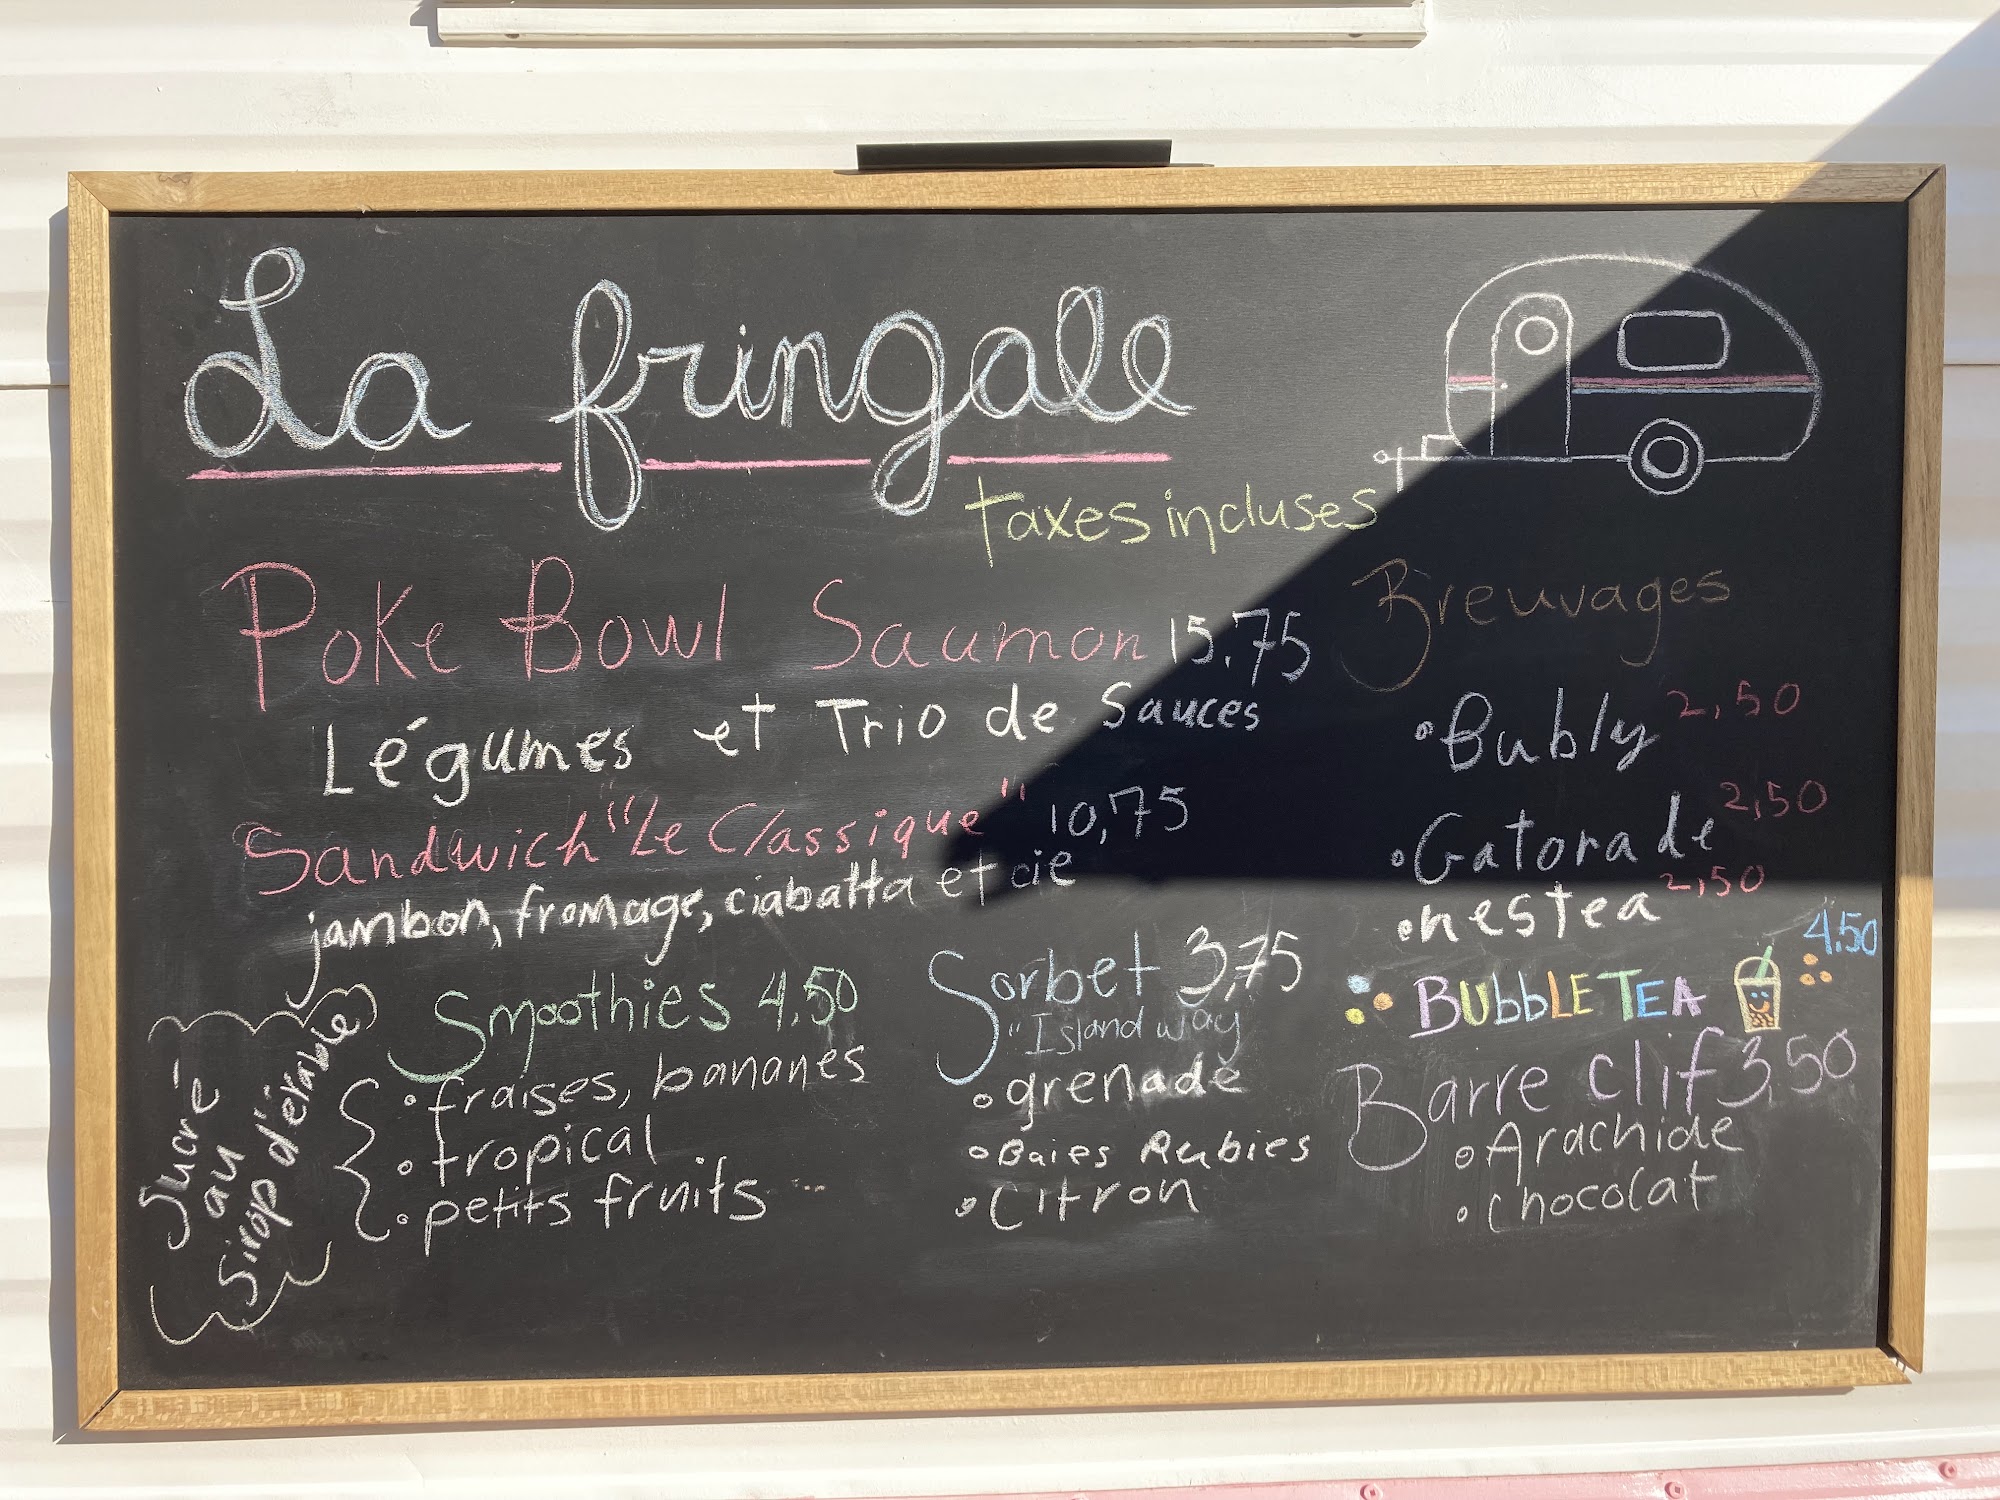 La fringale
taxes incluses
Poke Bowl Saumon 15.75
Légumes et Trio de Sauces
Sandwich "Le Classique" 10,75
jambon, fromage, ciabatta et cie
Smoothies 4.50
• fraises, bananes
• tropical
• petits fruits
Sucré
au
sirop d'érable
Sorbet 3,75
"Island way
• grenade
• Baies Rubies
• Citron
Breuvages
• Bubly 2,50
• Gatorade 2,50
• nestea 2,50
BUbbLE TEA 4.50
Barre clif 3.50
• Arachide
• chocolat